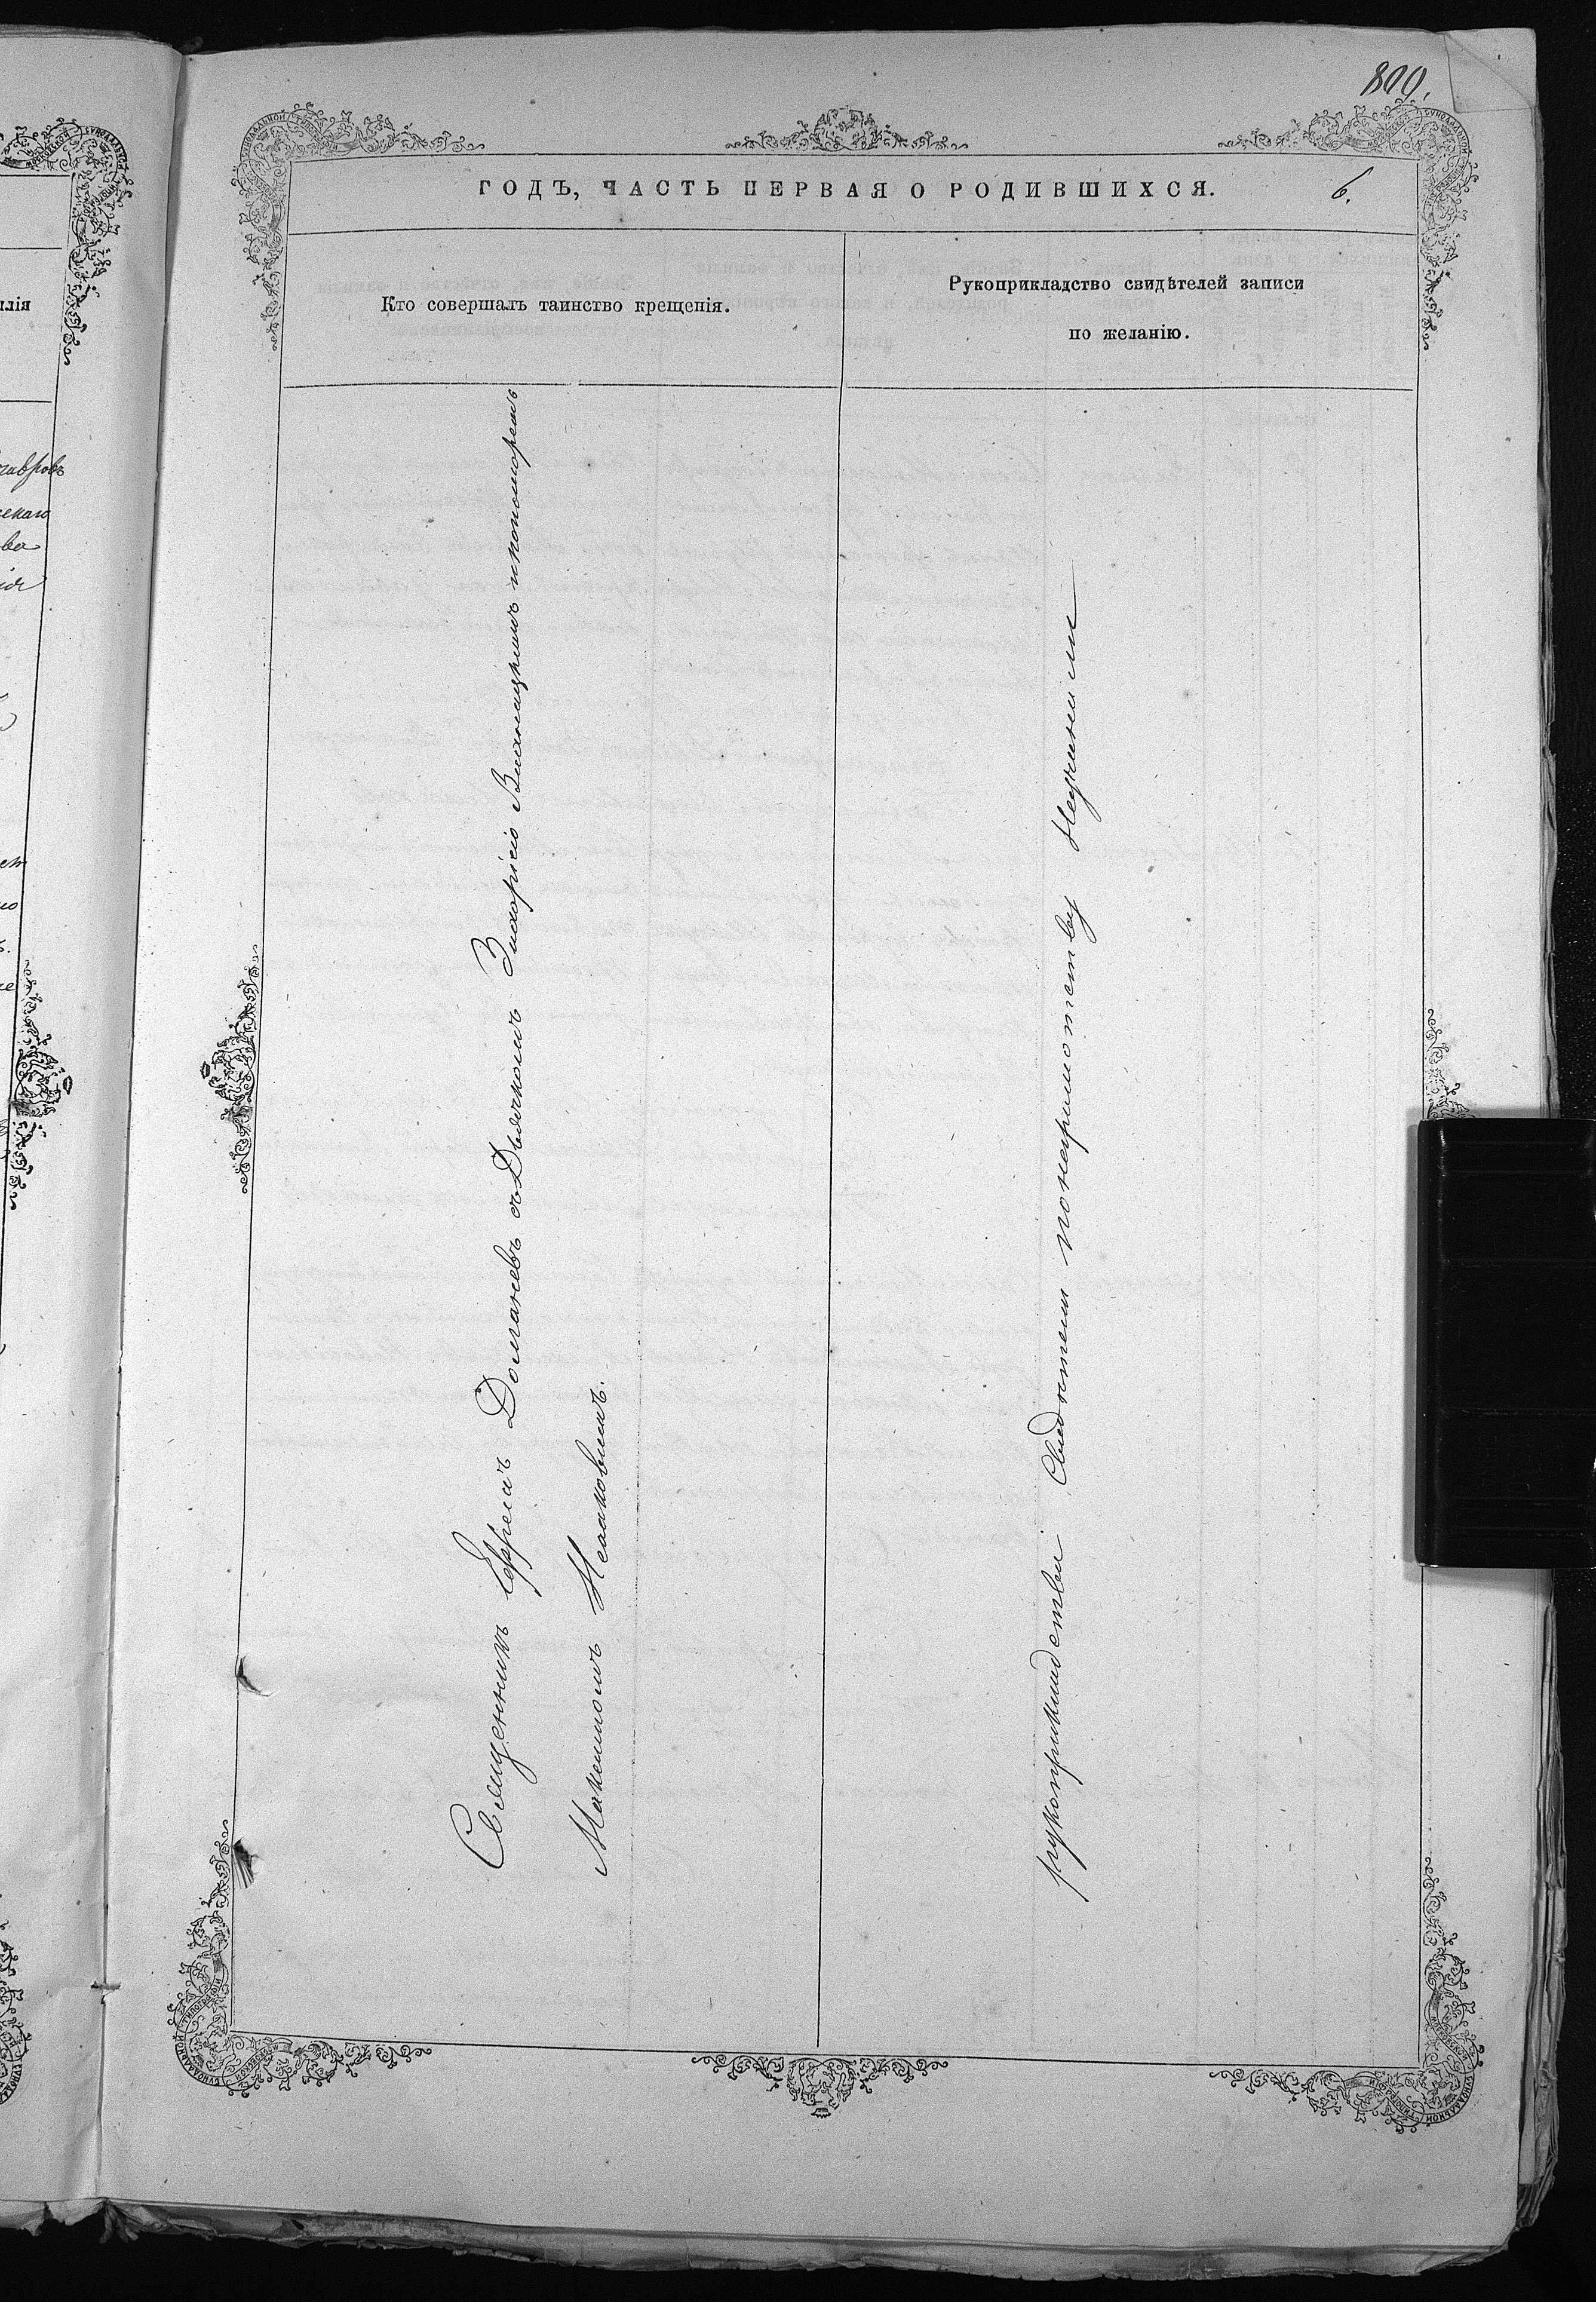 809.
ГОДЪ, ЧАСТЬ ПЕРВАЯ О РОДИВШИХСЯ.
6.
Кто совершалъ таинство крещенія.
Рукоприкладство свидѣтелей записи
по желанію.
Священникъ Ефремъ Доманевъ съ Дьячкомъ и пономоремъ
Максимомъ Исаковымъ.
рукоприкладства Свидѣтели понеграмотству Неучинили